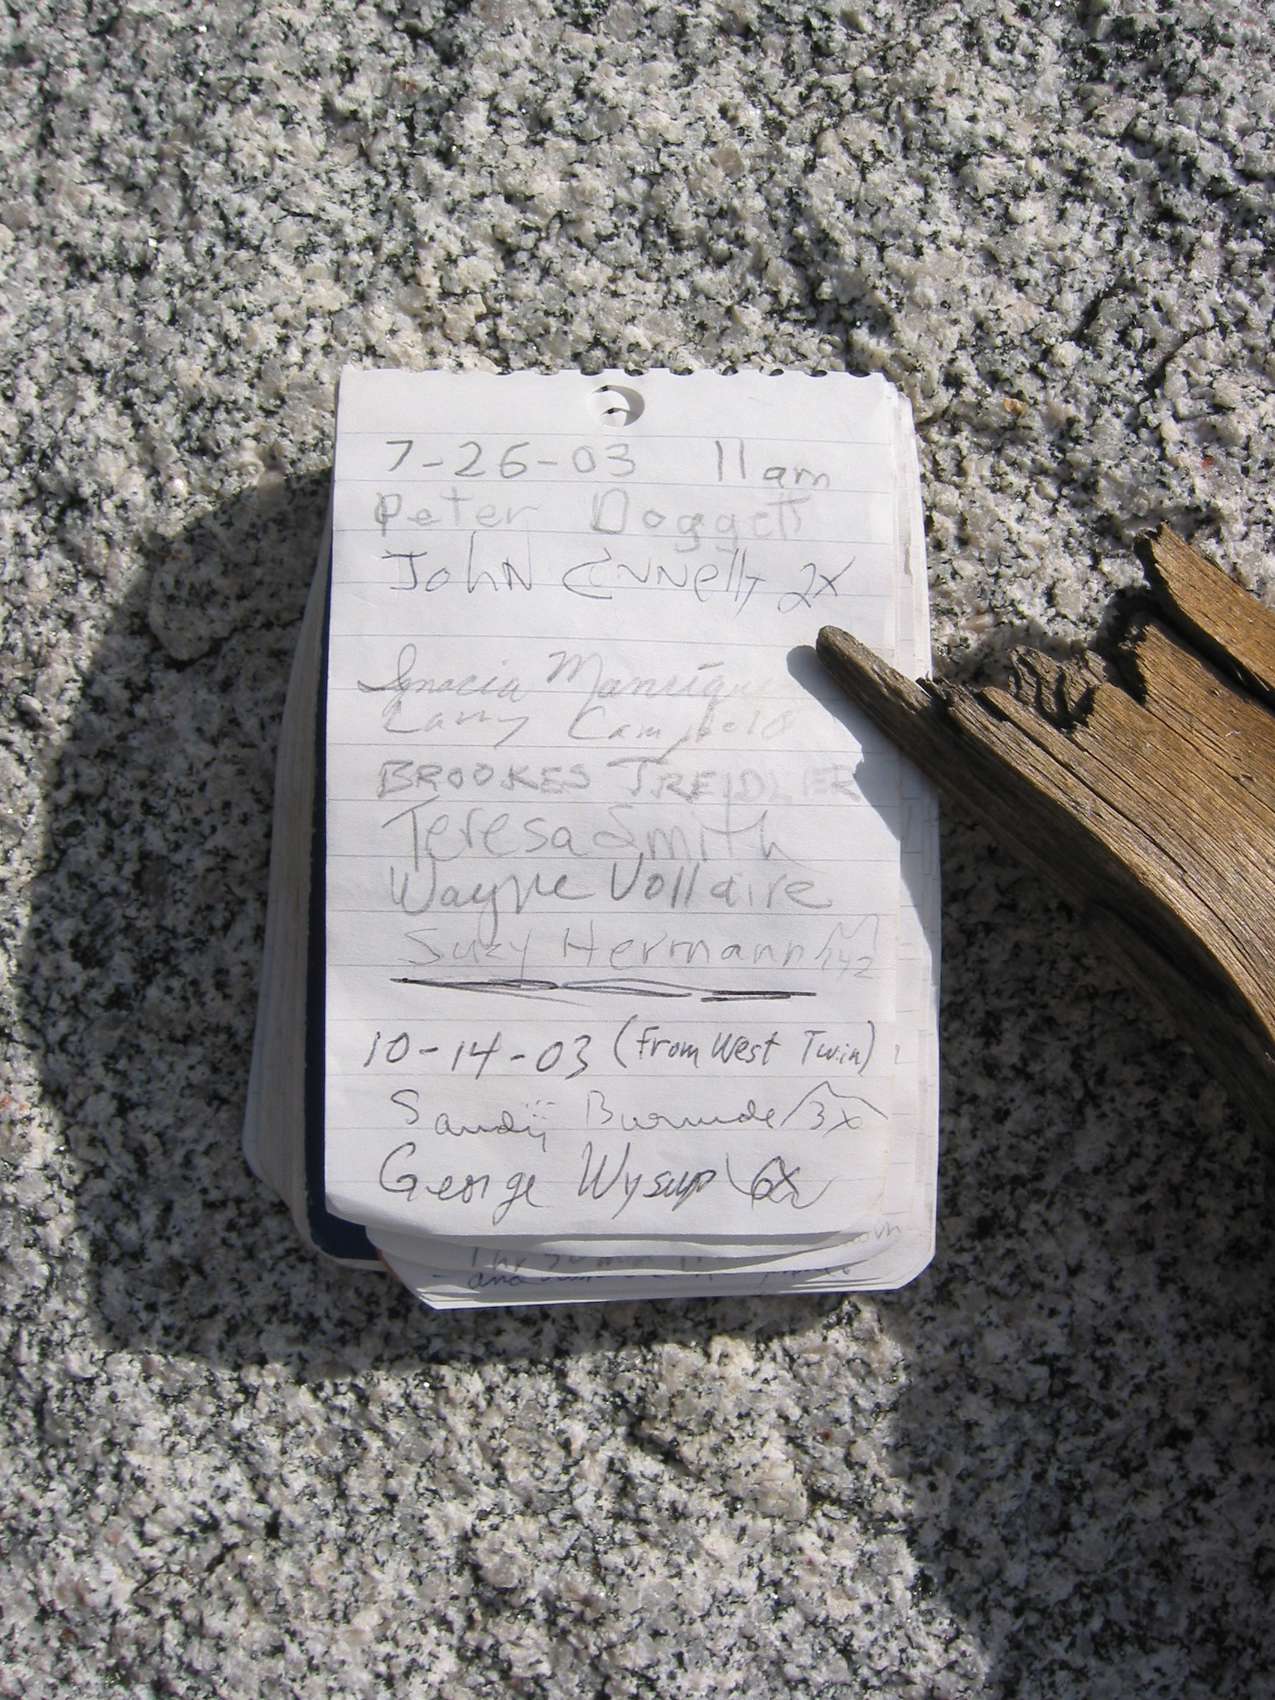 7-26-03 11am
Peter Doggett
John Connelly 2X
Ignacia Manrique
Larry Campbell
BROOKES TREIDLER
Teresa Smith
Wayne Vollaire
Suzy Hermann
10-14-03 (From West Twin)
Sandy Burnside 3x
George Wysup 6x